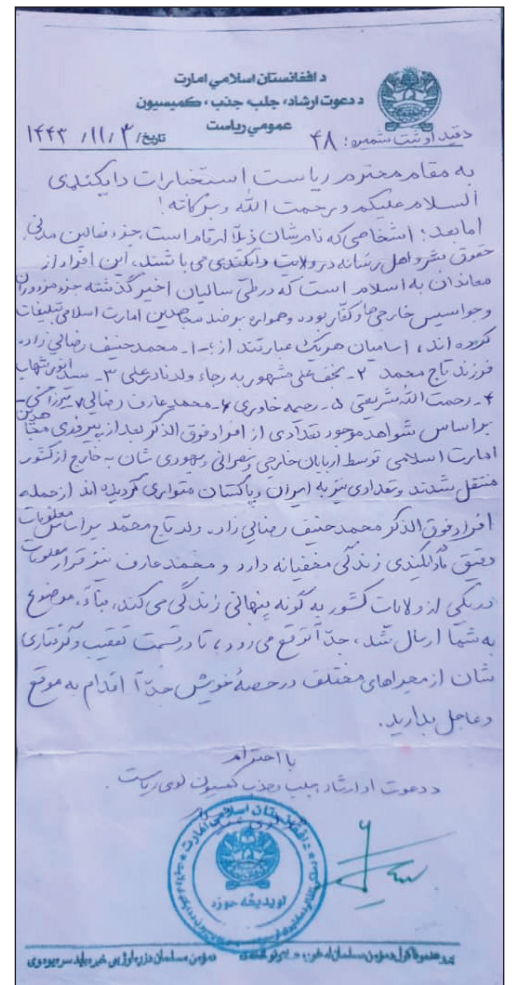 د افغانستان اسلامي امارت
د دعوت ارشاد، جلب، جذب ، کمیسیون
عمومي ریاست
د قید او ثبت شمېره: ۴۸ تاریخ: ۱۴۴۳/۱۱/۳
به مقام محترم ریاست استخبارات دایکندی
السلام علیکم ورحمت الله وبرکاته!
اما بعد: اشخاصی که نام شان ذیلاً ارقام است جزء فعالین مدنی
حقوق بشر و اهل رسانه در ولایت دایکندی می باشند، این افراد از
معاندان به اسلام است که در طی سالیان اخیر گذشته جزء مزدوران
و جواسیس خارجی ها و کفار بوده و همواره بر ضد مجاهدین امارت اسلامی تبلیغات
کروه اند، اسامیان هر یک عبارتند از:- ۱- محمد حنیف رضائی زاد.
فرزند تاج محمد ۲- نجف علی مشهور به رجاء ولد نادر علی ۳- سید انور شهاب
۴- رحمت الله شریعتی ۵- رحیمه خاوری ۶- محمد عارف رضائی ۷-
بر اساس شواهد موجود تعدادی از افراد فوق الذکر بعد از پیروزی مجاهدین
امارت اسلامی توسط اربابان خارجی و نصرانی و یهودی شان به خارج از کشور
منتقل شدند و تعدادی نیز به ایران و پاکستان متواری گردیده اند از جمله
افراد فوق الذکر محمد حنیف رضائی زاد. ولد تاج محمد بر اساس معلومات
دقیق دایکندی زندگی مخفیانه دارد و محمد عارف نیز قرار معلومات
در یکی از ولایات کشور به گونه پنهانی زندگی می کند، بناءً، موضوع
به شما ارسال شد، جداً توقع می رود، تا در قسمت تعقیب و گرفتاری
شان از مجراهای مختلف در حصهٔ خویش جداً اقدام به موقع
و عاجل بدارید.
با احترام
د دعوت او ارشاد، جلب و جذب کمیسیون لوی ریاست.
د افغانستان اسلامي امارت
لویدیځه حوزه